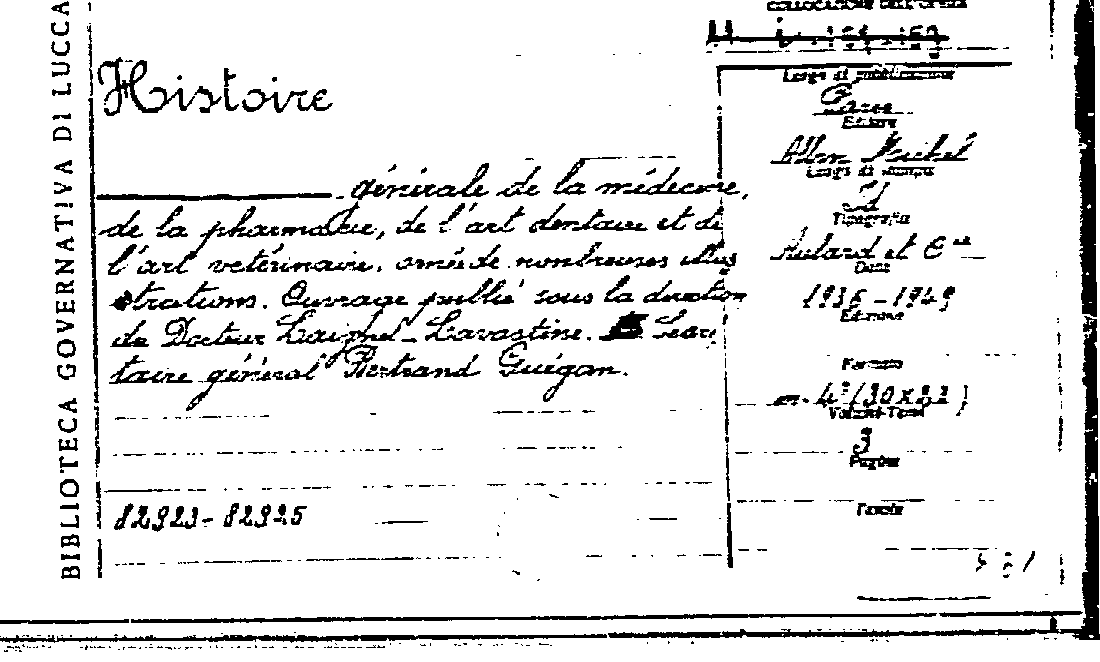 BIBLIOTECA GOVERNATIVA DI LUCCA
COLLOCAZIONE DELL'OPERA
Histoire
générale de la médecine,
de la pharmacie, de l'art dentaire et de
l'art vétérinaire. orné de nombreuses illus
strations. Ouvrage publié sous la direction
du Docteur Laignel-Lavastine. Secré
taire général Bertrand Guégan.
82923-82925
Luogo di pubblicazione
Paris
Editore
Albin Michel
Luogo di stampa
Tipografia
Aulard et Cie
Data
1936-1949
Edizione
Formato
in-4° (30x22)
Volumi-Tomi
3
Pagine
Tavole